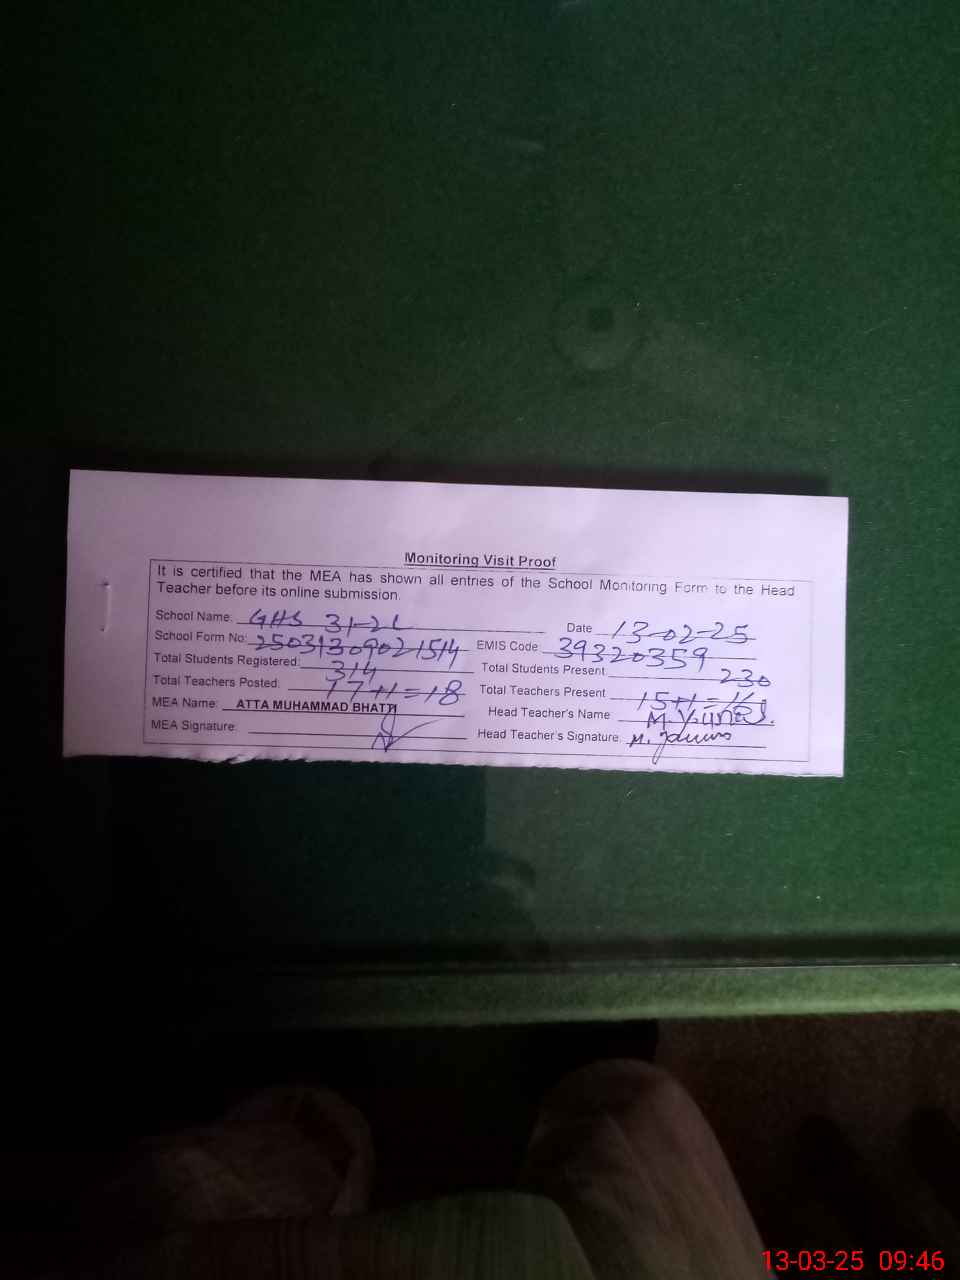 Monitoring Visit Proof
It is certified that the MEA has shown all entries of the School Monitoring Form to the Head
Teacher before its online submission.
School Name: GHS 31-2L Date 13-02-25
School Form No: 25031309021514 EMIS Code 39320359
Total Students Registered: 314 Total Students Present 230
Total Teachers Posted: 17+1=18 Total Teachers Present 15+1=16
MEA Name: ATTA MUHAMMAD BHATTI Head Teacher's Name M. Younas.
MEA Signature: Head Teacher's Signature. M. Younas
13-03-25 09:46